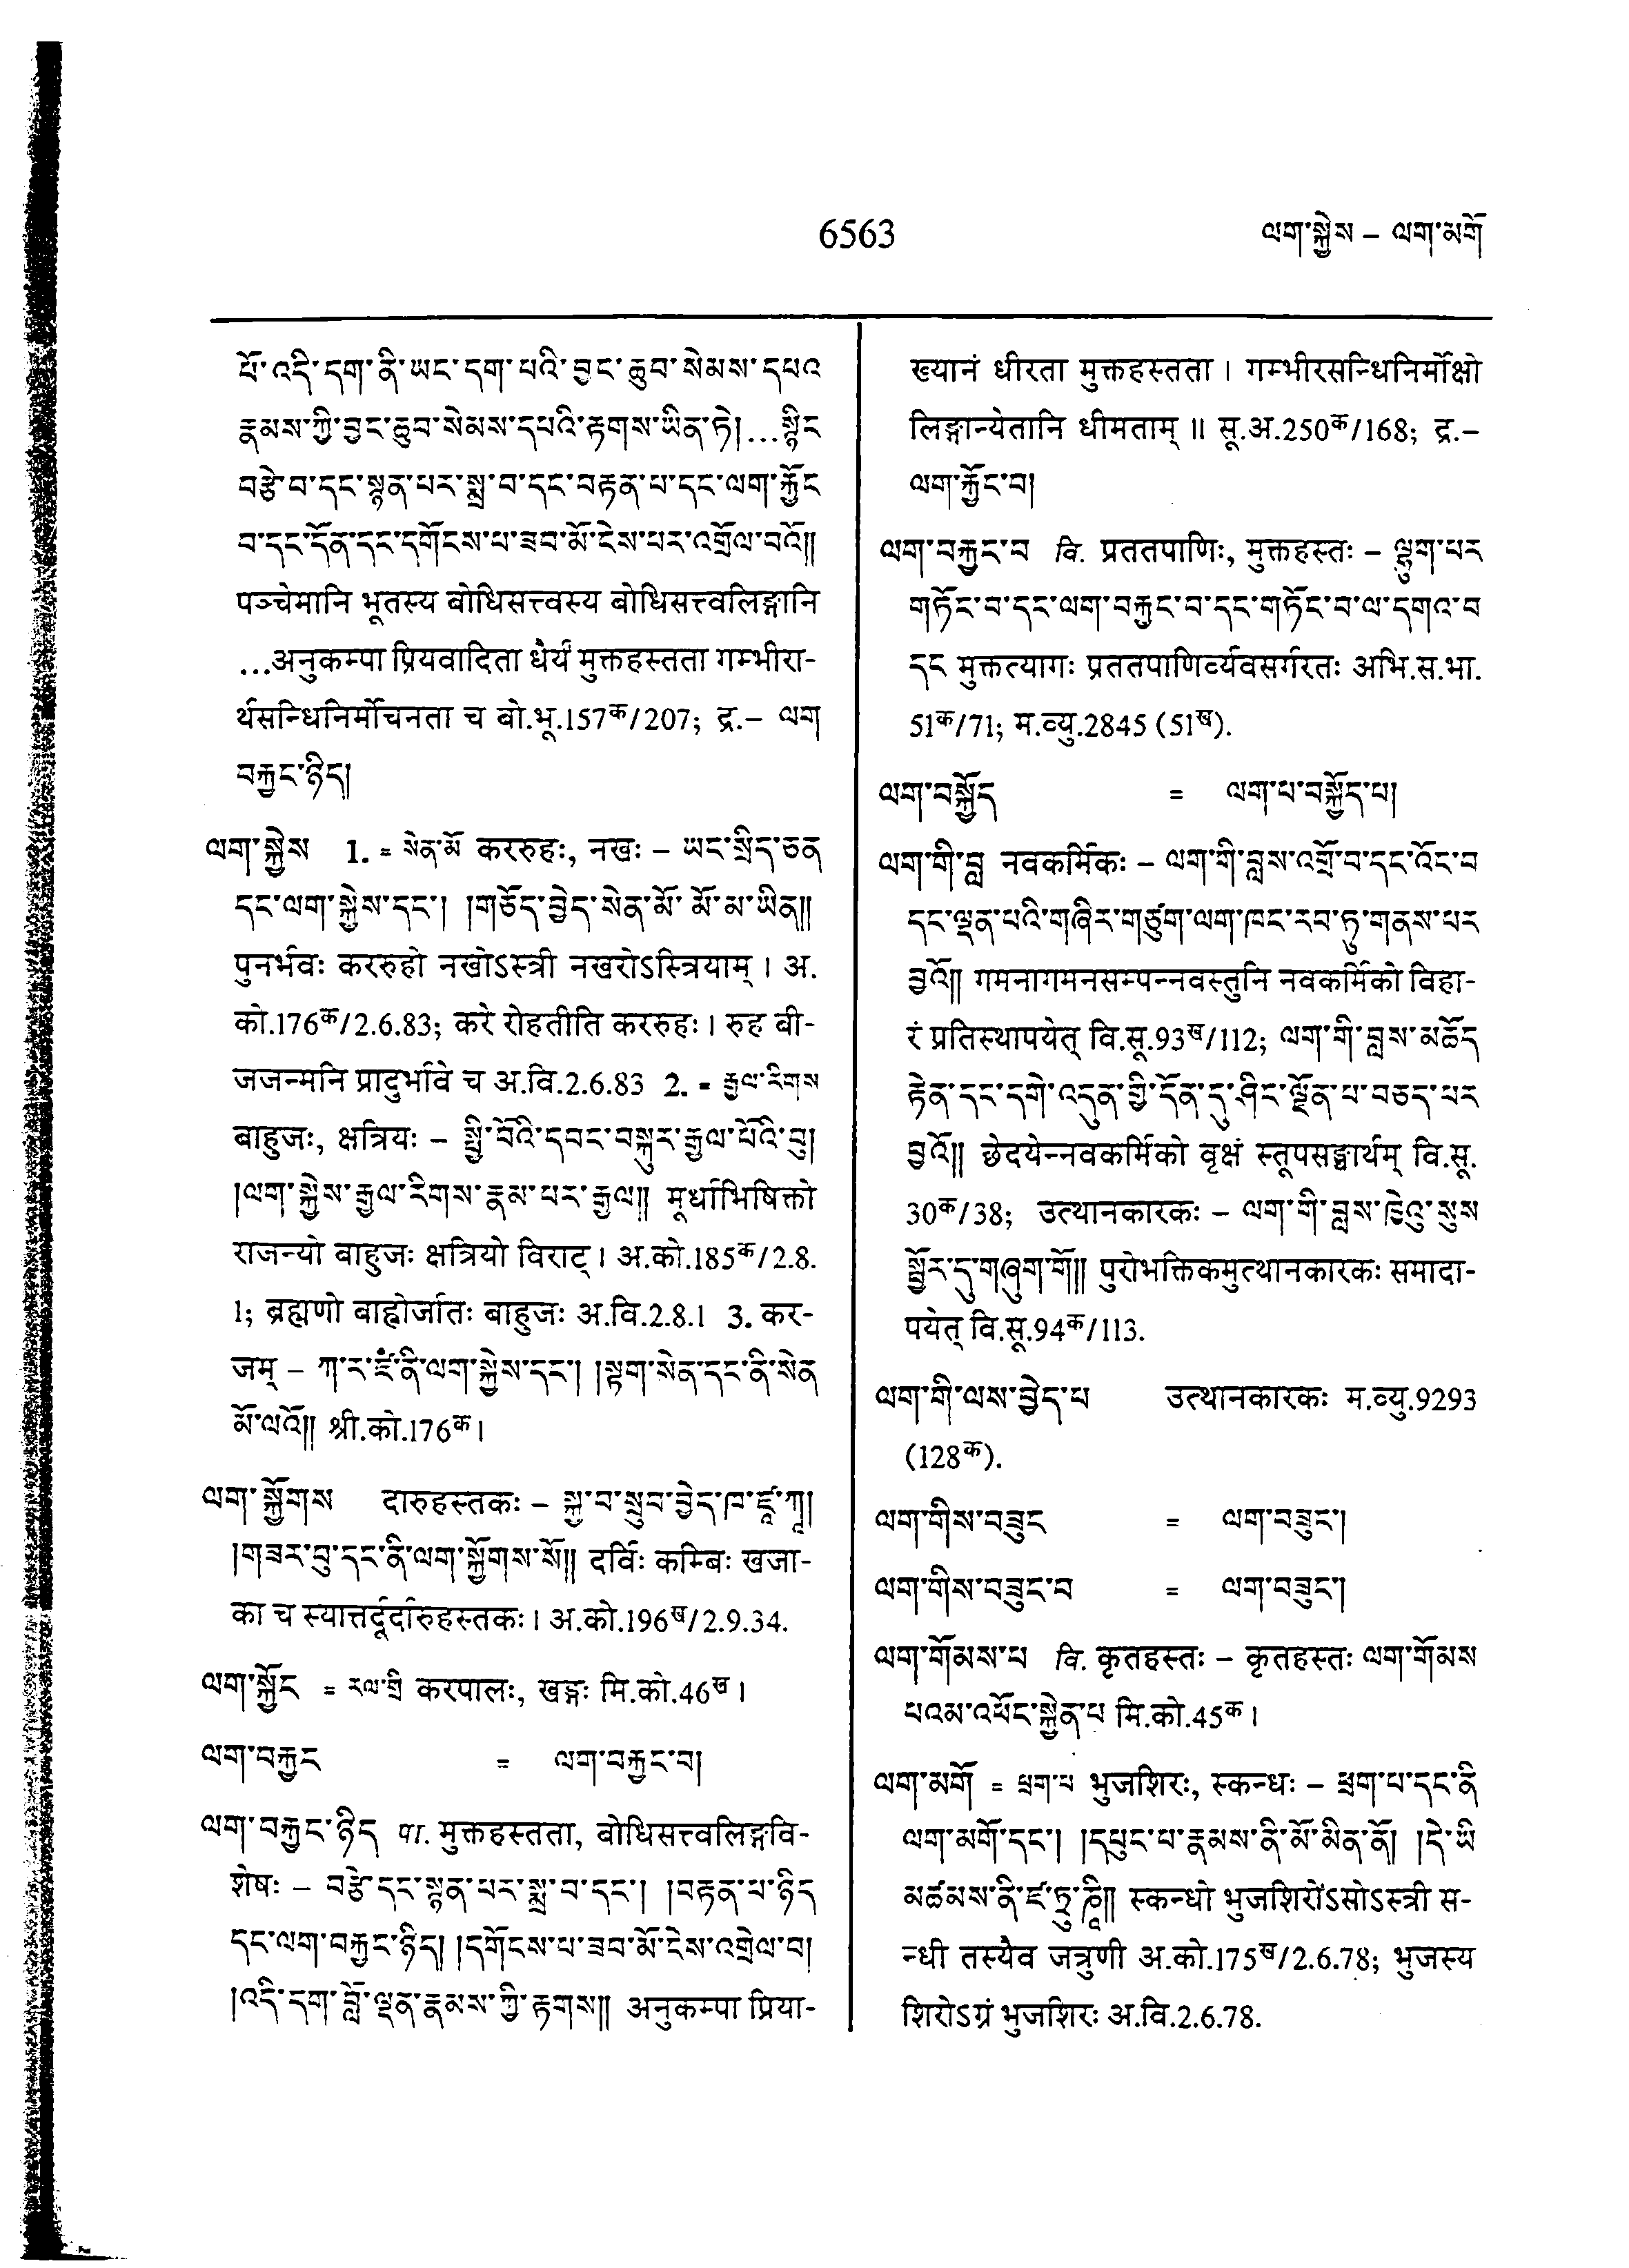 6563
ལག་སྐྱེས – ལག་མགོ
པོ་འདི་དག་ནི་ཡང་དག་པའི་བྱང་ཆུབ་སེམས་དཔའ
རྣམས་ཀྱི་བྱང་ཆུབ་སེམས་དཔའི་རྟགས་ཡིན་ཏེ།...སྙིང
བརྩེ་བ་དང་སྙན་པར་སྨྲ་བ་དང་བརྟན་པ་དང་ལག་རྐྱོང
བ་དང་དོན་དང་དགོངས་པ་ཟབ་མོ་ངེས་པར་འགྲོལ་བའོ༎
पञ्चेमानि भूतस्य बोधिसत्त्वस्य बोधिसत्त्वलिङ्गानि
...अनुकम्पा प्रियवादिता धैर्यं मुक्तहस्तता गम्भीरा-
र्थसन्धिनिर्मोचनता च बो.भू.157क/207; द्र.– ལག
བརྐྱང་ཉིད།
ལག་སྐྱེས 1. = སེན་མོ कररुहः, नखः – ཡང་སྲིད་ཅན
དང་ལག་སྐྱེས་དང་། །གཅོད་བྱེད་སེན་མོ་མོ་མ་ཡིན༎
पुनर्भवः कररुहो नखोऽस्त्री नखरोऽस्त्रियाम् । अ.
को.176क/2.6.83; करे रोहतीति कररुहः । रुह बी-
जजन्मनि प्रादुर्भावे च अ.वि.2.6.83 2. = རྒྱལ་རིགས
बाहुजः, क्षत्रियः – སྤྱི་བོའི་དབང་བསྐུར་རྒྱལ་པོའི་བུ།
།ལག་སྐྱེས་རྒྱལ་རིགས་རྣམ་པར་རྒྱལ༎ मूर्धाभिषिक्तो
राजन्यो बाहुजः क्षत्रियो विराट् । अ.को.185क/2.8.
1; ब्रह्मणो बाह्वोर्जातः बाहुजः अ.वि.2.8.1 3. कर-
जम् – ཀ་ར་ཛཾ་ནི་ལག་སྐྱེས་དང་། །སྟག་སེན་དང་ནི་སེན
མོ་ལའོ༎ श्री.को.176क ।
ལག་སྐྱོགས दारुहस्तकः – སྐྱ་བ་སྲུབ་བྱེད་ཁ་ཛཱ་ཀཱ།
།གཟར་བུ་དང་ནི་ལག་སྐྱོགས་སོ༎ दर्विः कम्बिः खजा-
का च स्यात्तर्दूर्दारुहस्तकः । अ.को.196ख/2.9.34.
ལག་སྐྱོང = རལ་གྲི करपालः, खड्गः मि.को.46ख ।
ལག་བརྐྱང = ལག་བརྐྱང་བ།
ལག་བརྐྱང་ཉིད पा. मुक्तहस्तता, बोधिसत्त्वलिङ्गवि-
शेषः – བརྩེ་དང་སྙན་པར་སྨྲ་བ་དང་། །བརྟན་པ་ཉིད
དང་ལག་བརྐྱང་ཉིད། །དགོངས་པ་ཟབ་མོ་ངེས་འགྲེལ་བ།
།འདི་དག་བློ་ལྡན་རྣམས་ཀྱི་རྟགས༎ अनुकम्पा प्रिया-
ख्यानं धीरता मुक्तहस्तता । गम्भीरसन्धिनिर्मोक्षो
लिङ्गान्येतानि धीमताम् ॥ सू.अ.250क/168; द्र.–
ལག་རྐྱོང་བ།
ལག་བརྐྱང་བ वि. प्रततपाणिः, मुक्तहस्तः – ལྷུག་པར
གཏོང་བ་དང་ལག་བརྐྱང་བ་དང་གཏོང་བ་ལ་དགའ་བ
དང मुक्तत्यागः प्रततपाणिर्व्यवसर्गरतः अभि.स.भा.
51क/71; म.व्यु.2845 (51ख).
ལག་བསྐྱོད = ལག་པ་བསྐྱོད་པ།
ལག་གི་བླ नवकर्मिकः – ལག་གི་བླས་འགྲོ་བ་དང་འོང་བ
དང་ལྡན་པའི་གཞིར་གཙུག་ལག་ཁང་རབ་ཏུ་གནས་པར
བྱའོ༎ गमनागमनसम्पन्नवस्तुनि नवकर्मिको विहा-
रं प्रतिस्थापयेत् वि.सू.93ख/112; ལག་གི་བླས་མཆོད
རྟེན་དང་དགེ་འདུན་གྱི་དོན་དུ་ཤིང་ལྗོན་པ་བཅད་པར
བྱའོ༎ छेदयेन्नवकर्मिको वृक्षं स्तूपसङ्घार्थम् वि.सू.
30क/38; उत्थानकारकः – ལག་གི་བླས་ཁྱེའུ་སུས
སྦྱོར་དུ་གཞུག་གོ༎ पुरोभक्तिकमुत्थानकारकः समादा-
पयेत् वि.सू.94क/113.
ལག་གི་ལས་བྱེད་པ उत्थानकारकः म.व्यु.9293
(128क).
ལག་གིས་བཟུང = ལག་བཟུང་།
ལག་གིས་བཟུང་བ = ལག་བཟུང་།
ལག་གོམས་པ वि. कृतहस्तः – कृतहस्तः ལག་གོམས
པའམ་འཕོང་སྐྱེན་པ मि.को.45क ।
ལག་མགོ = ཕྲག་པ भुजशिरः, स्कन्धः – ཕྲག་པ་དང་ནི
ལག་མགོ་དང་། །དཔུང་པ་རྣམས་ནི་མོ་མིན་ནོ། །དེ་ཡི
མཚམས་ནི་ཛ་ཏྲུ་ཎཱི༎ स्कन्धो भुजशिरोंऽसोऽस्त्री स-
न्धी तस्यैव जत्रुणी अ.को.175ख/2.6.78; भुजस्य
शिरोऽग्रं भुजशिरः अ.वि.2.6.78.